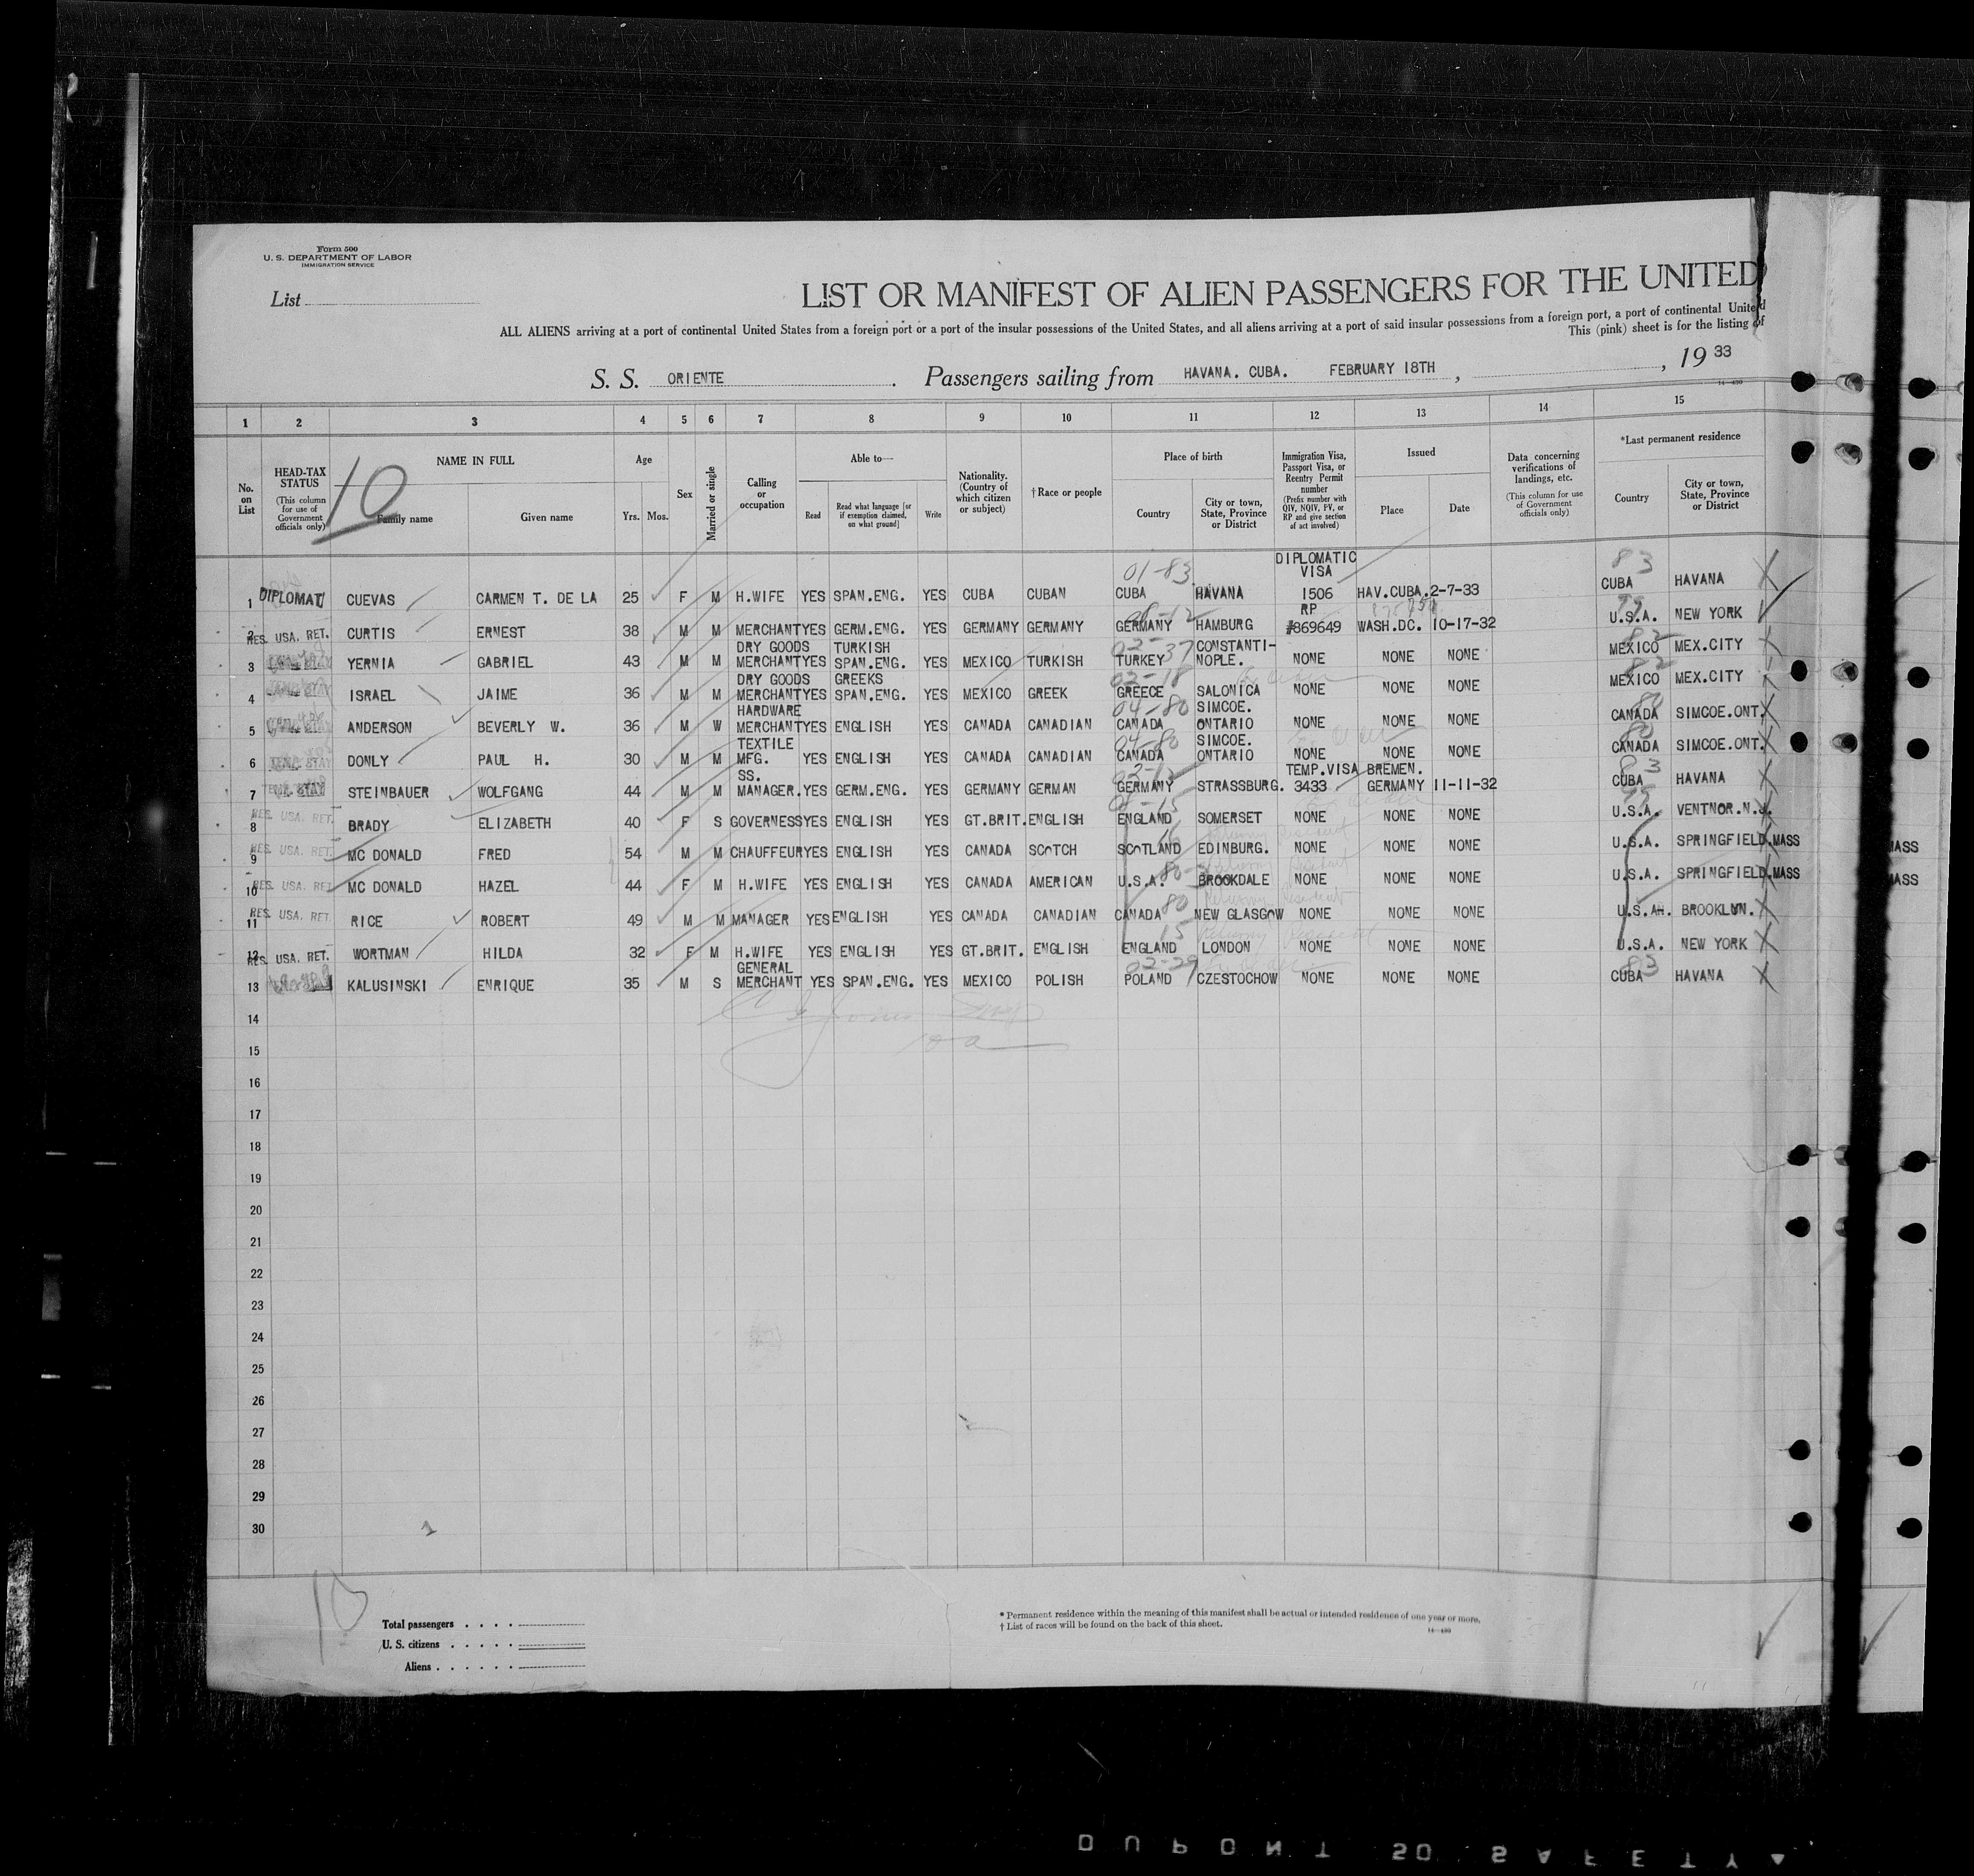 Form 500
U. S. DEPARTMENT OF LABOR
IMMIGRATION SERVICE
List
LIST OR MANIFEST OF ALIEN PASSENGERS FOR THE UNITED
ALL ALIENS arriving at a port of continental United States from a foreign port or a port of the insular possessions of the United States, and all aliens arriving at a port of said insular possessions from a foreign port, a port of continental United
This (pink) sheet is for the listing of
S. S. ORIENTE . Passengers sailing from HAVANA. CUBA. FEBRUARY 18TH , , 19 33
14-430
1 2 3 4 5 6 7 8 9 10 11 12 13 14 15
No. on List
HEAD-TAX STATUS
(This column for use of Government officials only)
10
NAME IN FULL
Family name Given name
Age
Yrs. Mos.
Sex
Married or single
Calling or occupation
Able to—
Read
Read what language [or if exemption claimed, on what ground]
Write
Nationality. (Country of which citizen or subject)
† Race or people
Place of birth
Country
City or town, State, Province or District
Immigration Visa, Passport Visa, or Reentry Permit number
(Prefix number with QIV, NQIV, PV, or RP and give section of act involved)
Issued
Place Date
Data concerning verifications of landings, etc.
(This column for use of Government officials only)
*Last permanent residence
Country
City or town, State, Province or District
DIPLOMATIC
01-83 VISA 83
1 DIPLOMAT CUEVAS CARMEN T. DE LA 25 F M H.WIFE YES SPAN.ENG. YES CUBA CUBAN CUBA HAVANA 1506 HAV.CUBA. 2-7-33 CUBA HAVANA
RP
2 RES. USA. RET. CURTIS ERNEST 38 M M MERCHANT YES GERM.ENG. YES GERMANY GERMANY GERMANY HAMBURG #869649 WASH.DC. 10-17-32 U.S.A. NEW YORK
DRY GOODS TURKISH 02-37 CONSTANTI- 82
3 YERNIA GABRIEL 43 M M MERCHANT YES SPAN.ENG. YES MEXICO TURKISH TURKEY NOPLE. NONE NONE NONE MEXICO MEX.CITY
DRY GOODS GREEKS 02-18 82
4 ISRAEL JAIME 36 M M MERCHANT YES SPAN.ENG. YES MEXICO GREEK GREECE SALONICA NONE NONE NONE MEXICO MEX.CITY
HARDWARE 04-80 SIMCOE. 80
5 ANDERSON BEVERLY W. 36 M W MERCHANT YES ENGLISH YES CANADA CANADIAN CANADA ONTARIO NONE NONE NONE CANADA SIMCOE.ONT.
TEXTILE 04-80 SIMCOE. 80
6 TEMP. STAY DONLY PAUL H. 30 M M MFG. YES ENGLISH YES CANADA CANADIAN CANADA ONTARIO NONE NONE NONE CANADA SIMCOE.ONT.
SS. 02-12 TEMP.VISA BREMEN. 83
7 STEINBAUER WOLFGANG 44 M M MANAGER. YES GERM.ENG. YES GERMANY GERMAN GERMANY STRASSBURG. 3433 GERMANY 11-11-32 CUBA HAVANA
8 RES. USA. RET. BRADY ELIZABETH 40 F S GOVERNESS YES ENGLISH YES GT.BRIT. ENGLISH ENGLAND SOMERSET NONE NONE NONE U.S.A. VENTNOR.N.J.
9 RES. USA. RET. MC DONALD FRED 54 M M CHAUFFEUR YES ENGLISH YES CANADA SCOTCH SCOTLAND EDINBURG. NONE NONE NONE U.S.A. SPRINGFIELD.MASS
10 RES. USA. RET. MC DONALD HAZEL 44 F M H.WIFE YES ENGLISH YES CANADA AMERICAN U.S.A. BROOKDALE NONE NONE NONE U.S.A. SPRINGFIELD.MASS
11 RES. USA. RET. RICE ROBERT 49 M M MANAGER YES ENGLISH YES CANADA CANADIAN CANADA 80 NEW GLASGOW NONE NONE NONE U.S.A. BROOKLYN.
12 RES. USA. RET. WORTMAN HILDA 32 F M H.WIFE YES ENGLISH YES GT.BRIT. ENGLISH ENGLAND LONDON NONE NONE NONE U.S.A. NEW YORK
GENERAL 02-29 83
13 KALUSINSKI ENRIQUE 35 M S MERCHANT YES SPAN.ENG. YES MEXICO POLISH POLAND CZESTOCHOW NONE NONE NONE CUBA HAVANA
14
15
16
17
18
19
20
21
22
23
24
25
26
27
28
29
30
MASS
MASS
10
Total passengers . . . .
U. S. citizens . . . . .
Aliens . . . . . .
* Permanent residence within the meaning of this manifest shall be actual or intended residence of one year or more.
† List of races will be found on the back of this sheet.
14-430
DUPONT 50 SAFETY